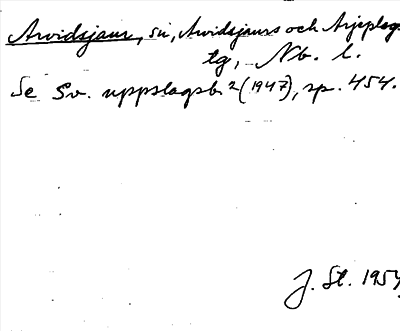 Arvidsjaur, sn, Arvidsjaurs och Arjeplogs
tg, Nb. l.
Se Sv. uppslagsb.² (1947), sp. 454.
J. St. 1954